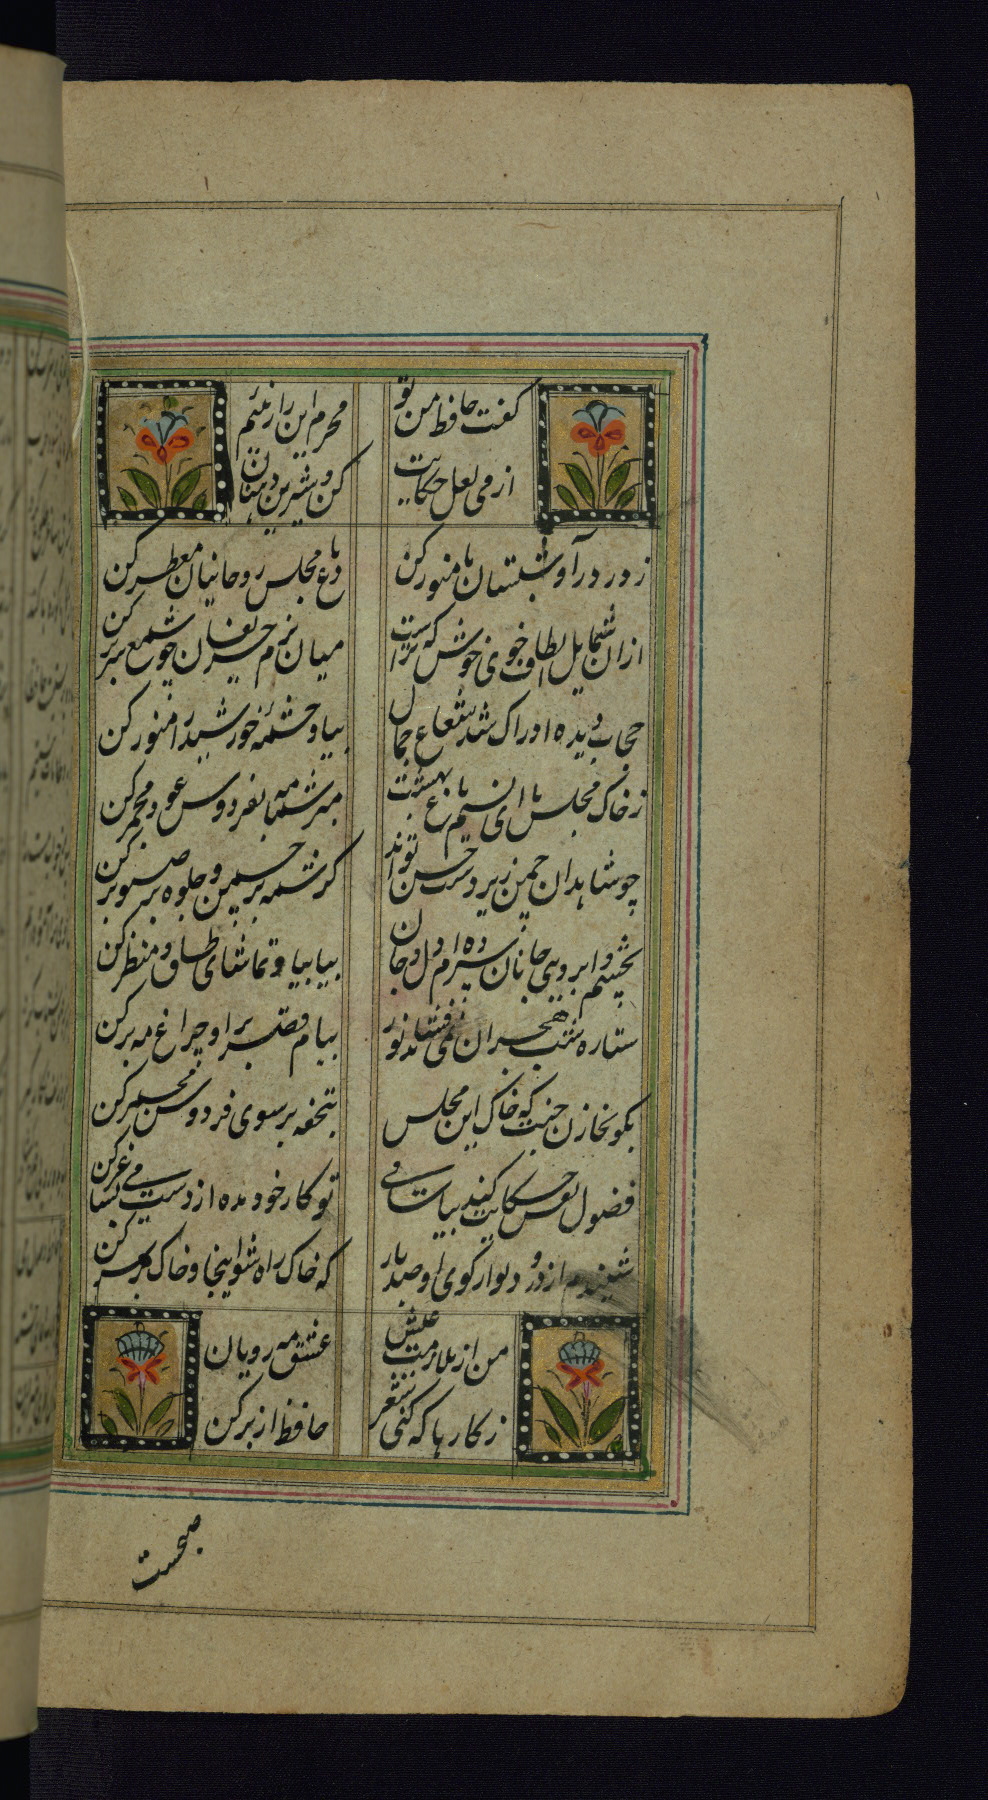 گفت حافظ من و تو محرم این راز نئیم
از می لعل حکایت کن و شیرین دهنان
ز در درآ و شبستان ما منور کن دماغ مجلس روحانیان معطر کن
ازان شمایل لطاف خوی خوش که تراست میان بزم حریفان چو شمع سر بر کن
حجاب دیده ادراک شد شعاع جمال بیا و چشمهٔ خورشید را منور کن
ز خاک مجلس ما ای نسیم باغ بهشت ببر شمامه بفردوس و عود مجمر کن
چو شاهدان چمن زیردست حسن تواند کرشمه بر سمن و جلوه بر صنوبر کن
بچشم و ابروی جانان سپرده‌ام دل و جان بیا بیا و تماشای طاق و منظر کن
ستاره شب هجران نمی فشاند نور ببام قصر برا و چراغ مه بر کن
بگو بخازن جنت که خاک این مجلس بتحفه بر سوی فردوس مجمر کن
فضول نفس حکایت کند بسی ساقی تو کار خود مده از دست می بساغر کن
شنیدم از در و دیوار کوی او صد بار که خاک راه شو اینجا و خاک بر سر کن
من از ملازمت عیش عشق مه رویان
ز کارها که کنی شعر حافظ از بر کن
صبحست